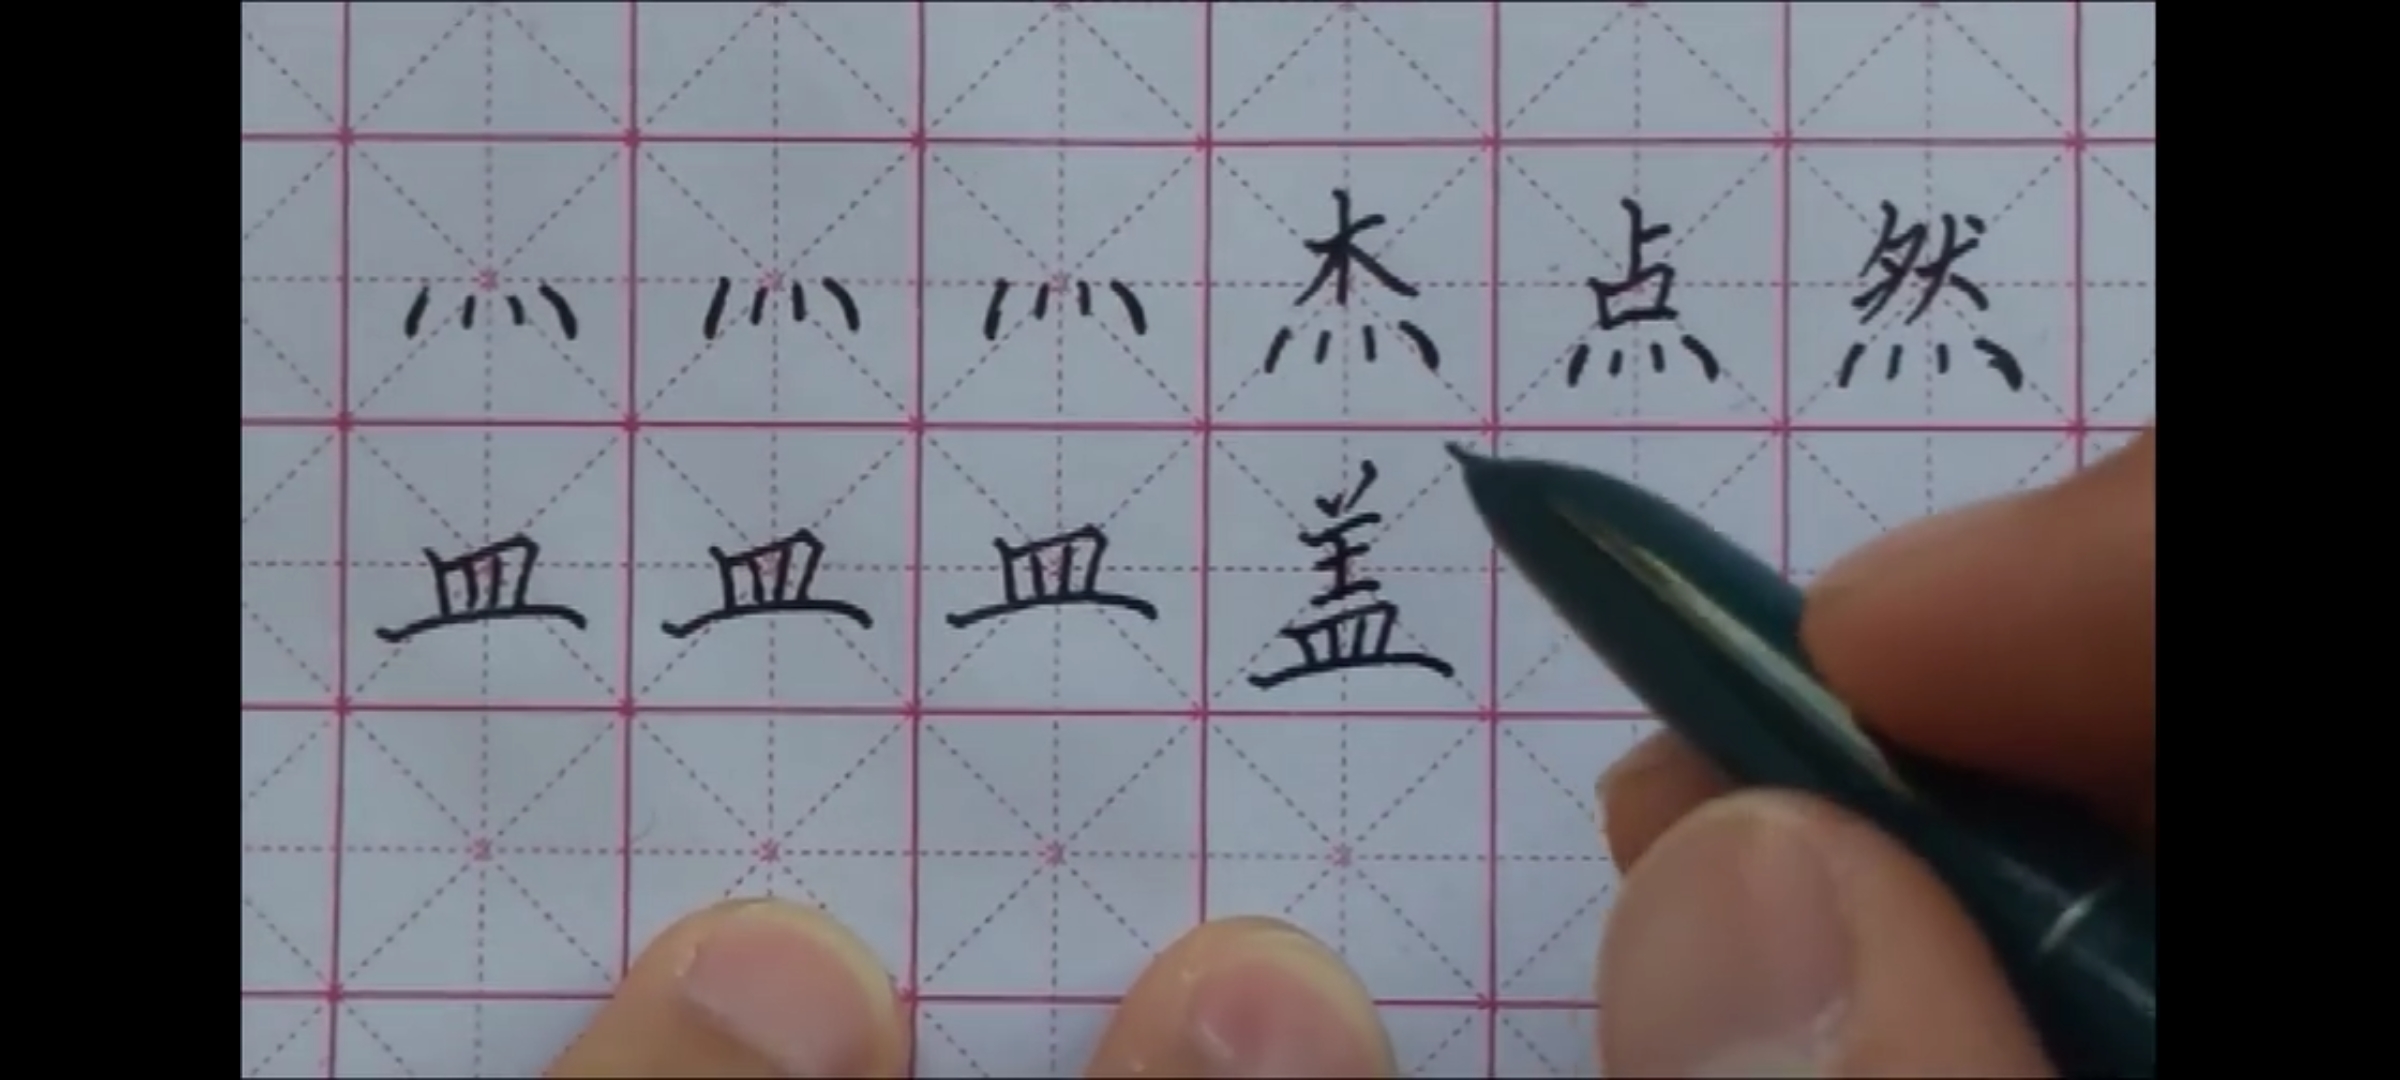 灬灬灬杰点然
皿皿皿盖